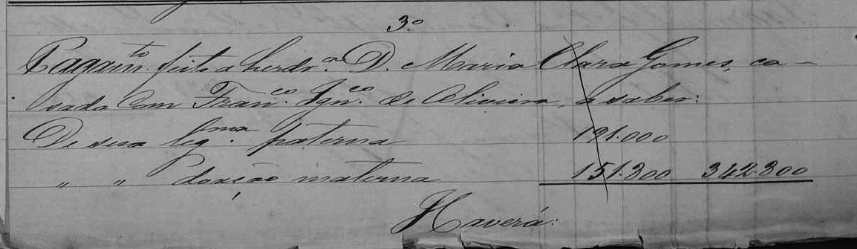 3.º
Pagam.to feito a herdr.a D. Maria Clara Gomes, ca-
sada com Fran.co Ign.co de Oliveira, a saber:
De sua leg.ma paterna 191.000
" " doação materna 151.800 342.800
Haverá: